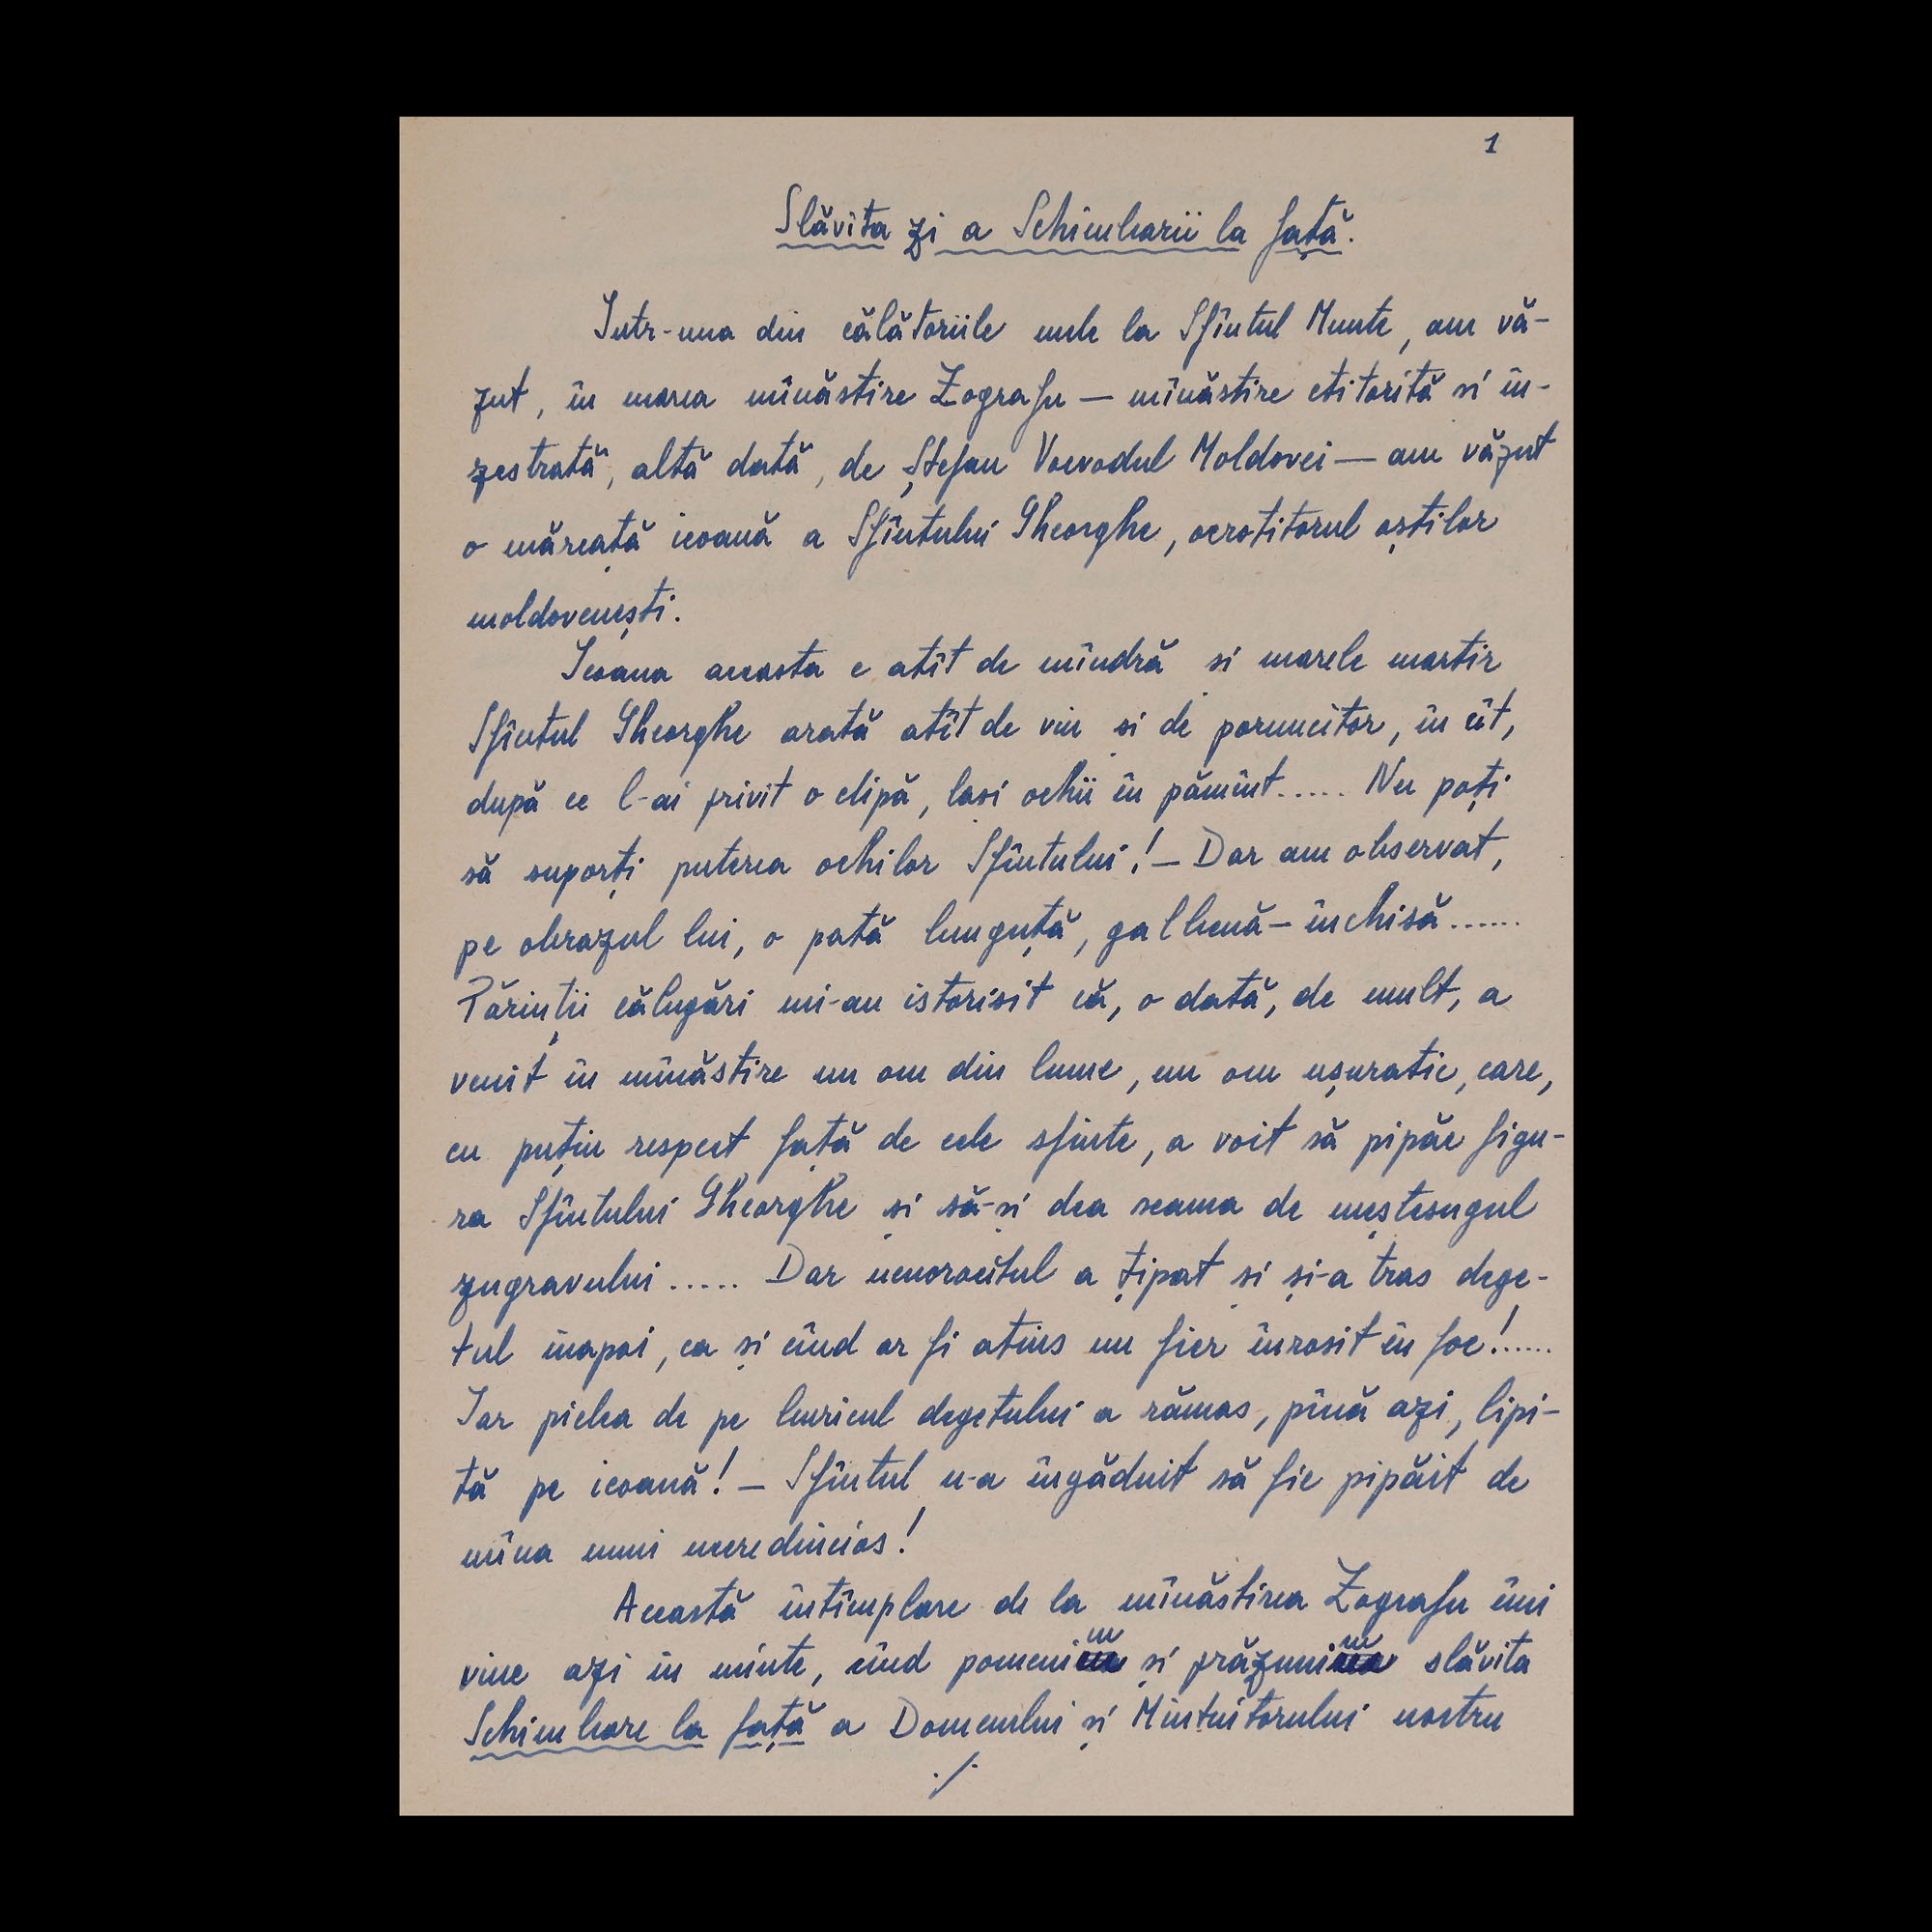 1
Slăvita zi a Schimbarii la față.
Intr-una din călătoriile mele la Sfîntul Munte, am vă-
zut, în marea mînăstire Zografu — mînăstire ctitorită si în-
zestrată, altă dată, de Ștefan Voevodul Moldovei — am văzut
o măreață icoană a Sfîntului Gheorghe, ocrotitorul oștilor
moldovenești.
Icoana aceasta e atît de mîndră si marele martir
Sfîntul Gheorghe arată atît de viu și de poruncitor, în cît,
după ce l-ai privit o clipă, lasi ochii în pămînt..... Nu poți
să suporți puterea ochilor Sfîntului! — Dar am observat,
pe obrazul lui, o pată lunguță, galbenă – închisă......
Părinții călugări mi-au istorisit că, o dată, de mult, a
venit în mînăstire un om din lume, un om ușuratic, care,
cu puțin respect față de cele sfinte, a voit să pipăe figu-
ra Sfîntului Gheorghe și să-și dea seama de meștesugul
zugravului..... Dar nenorocitul a țipat și și-a tras dege-
tul înapoi, ca și cînd ar fi atins un fier înrosit în foc!......
Iar pielea de pe buricul degetului a rămas, pînă azi, lipi-
tă pe icoană! — Sfîntul n-a îngăduit să fie pipăit de
mîna unui necredincios!
Această întîmplare de la mînăstirea Zografu îmi
vine azi în minte, cînd pomenim și prăznuim slăvita
Schimbare la față a Domnului și Mîntuitorului nostru
./.